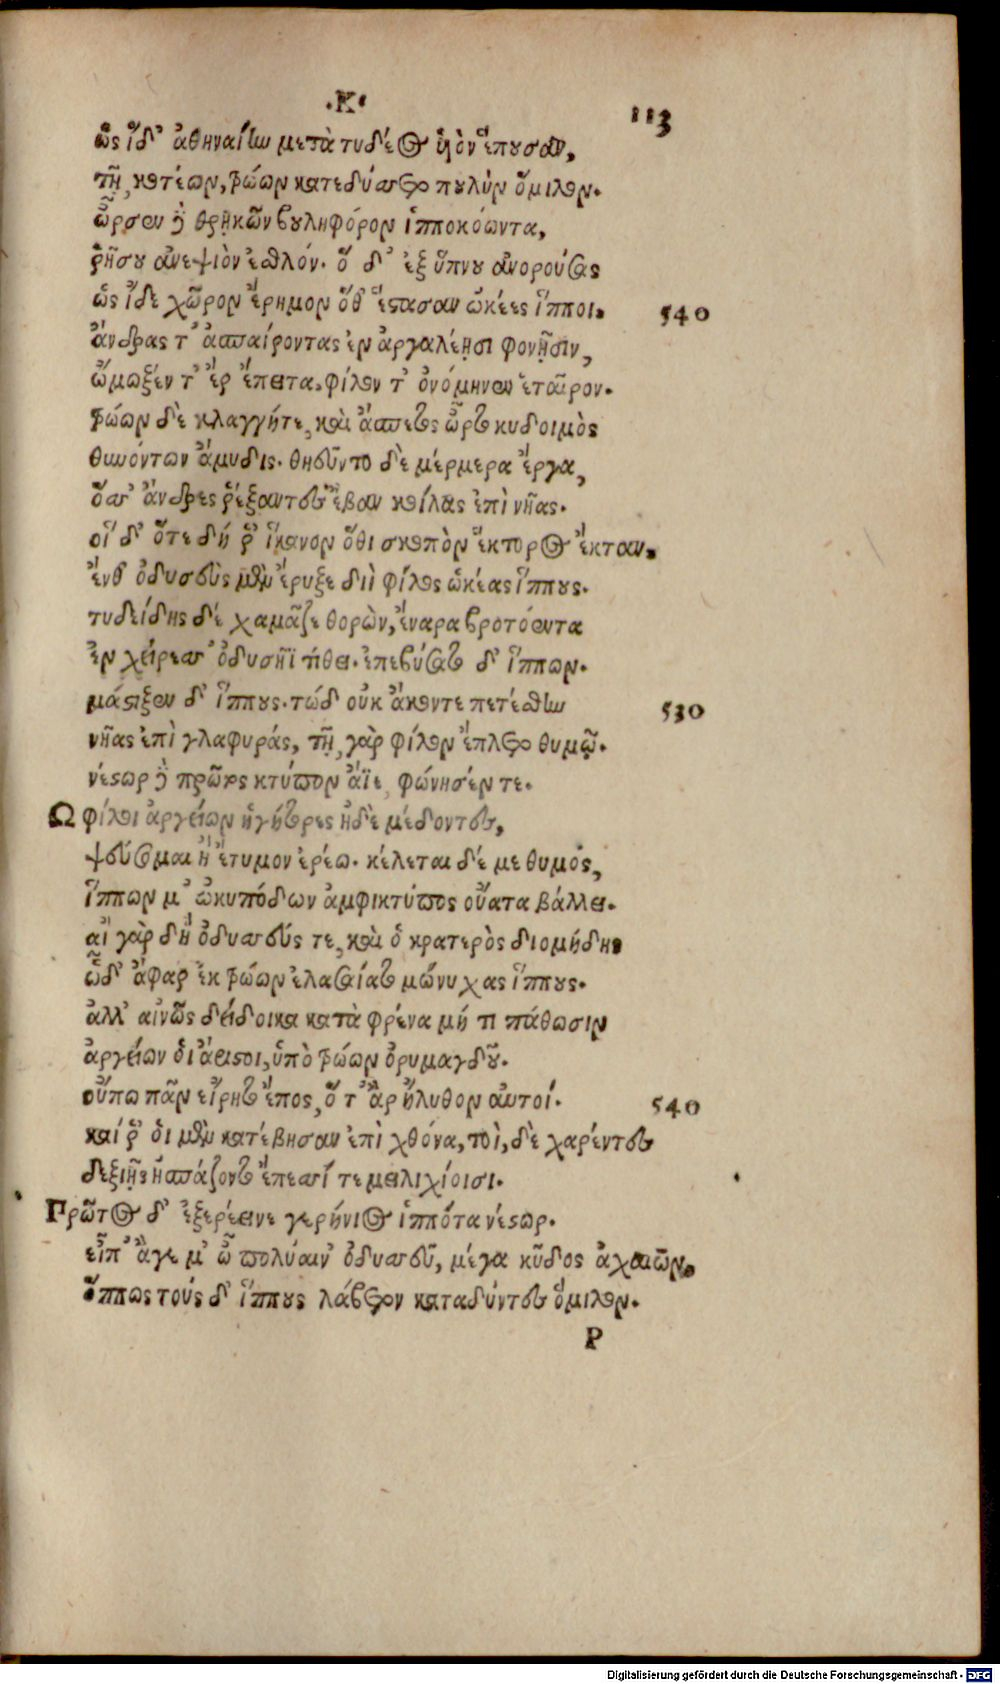 ·Κ·
113
ὡς ἴδ' ἀθηναίην μετὰ τυδέος υἱὸν ἕπουσαν,
τῇ κοτέων, τρώων κατεδύσσετο πουλὺν ὅμιλον.
ὦρσεν δὲ θρῃκῶν βουληφόρον ἱπποκόωντα,
ῥήσου ἀνεψιὸν ἐσθλόν. ὅ δ' ἐξ ὕπνου ἀνορούσας
ὡς ἴδε χῶρον ἔρημον ὅθ' ἕστασαν ὠκέες ἵπποι. 540
ἄνδρας τ' ἀσπαίροντας ἐν ἀργαλέῃσι φονῇσιν,
ᾤμωξέν τ' ἄρ ἔπειτα. φίλον τ' ὀνόμηνεν ἑταῖρον.
τρώων δὲ κλαγγήτε, καὶ ἄσπετος ὦρτο κυδοιμὸς
θυνόντων ἄμυδις. θηεῦντο δὲ μέρμερα ἔργα,
ὅσσ' ἄνδρες ῥέξαντες ἔβαν κοίλας ἐπὶ νῆας.
οἵ δ' ὅτε δή ῥ' ἵκανον ὅθι σκοπὸν ἕκτορος ἔκταν.
ἔνθ' ὀδυσεὺς μὲν ἔρυξε διῒ φίλος ὠκέας ἵππους.
τυδείδης δὲ χαμᾶζε θορὼν, ἔναρα βροτόεντα
ἐν χείρεσσ' ὀδυσῆϊ τίθει. ἐπεβύσατο δ' ἵππων.
μάστιξεν δ' ἵππους. τώδ' οὐκ ἄκοντε πετέσθην 530
νῆας ἐπὶ γλαφυράς, τῇ γὰρ φίλον ἔπλετο θυμῷ.
νέστωρ δὲ πρῶτος κτύπον ἄϊε, φώνησέν τε.
Ω φίλοι ἀργείων ἡγήτορες ἠδὲ μέδοντες,
ψεύσομαι ἢ ἔτυμον ἐρέω. κέλεται δέ με θυμός,
ἵππων μ' ὠκυπόδων ἀμφικτύπος οὔατα βάλλει.
αἲ γὰρ δὴ ὀδυσσεύς τε, καὶ ὁ κρατερὸς διομήδης
ὧδ' ἄφαρ ἐκ τρώων ἐλασαίατο μώνυχας ἵππους.
ἀλλ' αἰνῶς δείδοικα κατὰ φρένα μή τι πάθωσιν
ἀργείων ὁι ἄειστοι, ὑπὸ τρώων ὀρυμαγδοῦ.
οὔπω πᾶν εἴρητο ἔπος, ὅ τ' ἂρ ἤλυθον αὐτοί. 540
καί ῥ' ὁι μὲν κατέβησαν ἐπὶ χθόνα, τοὶ, δὲ χαρέντες
δεξιῇς ἠσπάζοντο ἔπεσσί τε μειλιχίοισι.
Πρῶτος δ' ἐξερέεινε γερήνιος ἱππότα νέστωρ.
εἶπ' ἄγε μ' ὦ πολύαιν' ὀδυσσεῦ, μέγα κῦδος ἀχαιῶν.
ὅππως τούς δ' ἵππους λάβετον καταδύντες ὅμιλον.
P
Digitalisierung gefördert durch die Deutsche Forschungsgemeinschaft - DFG